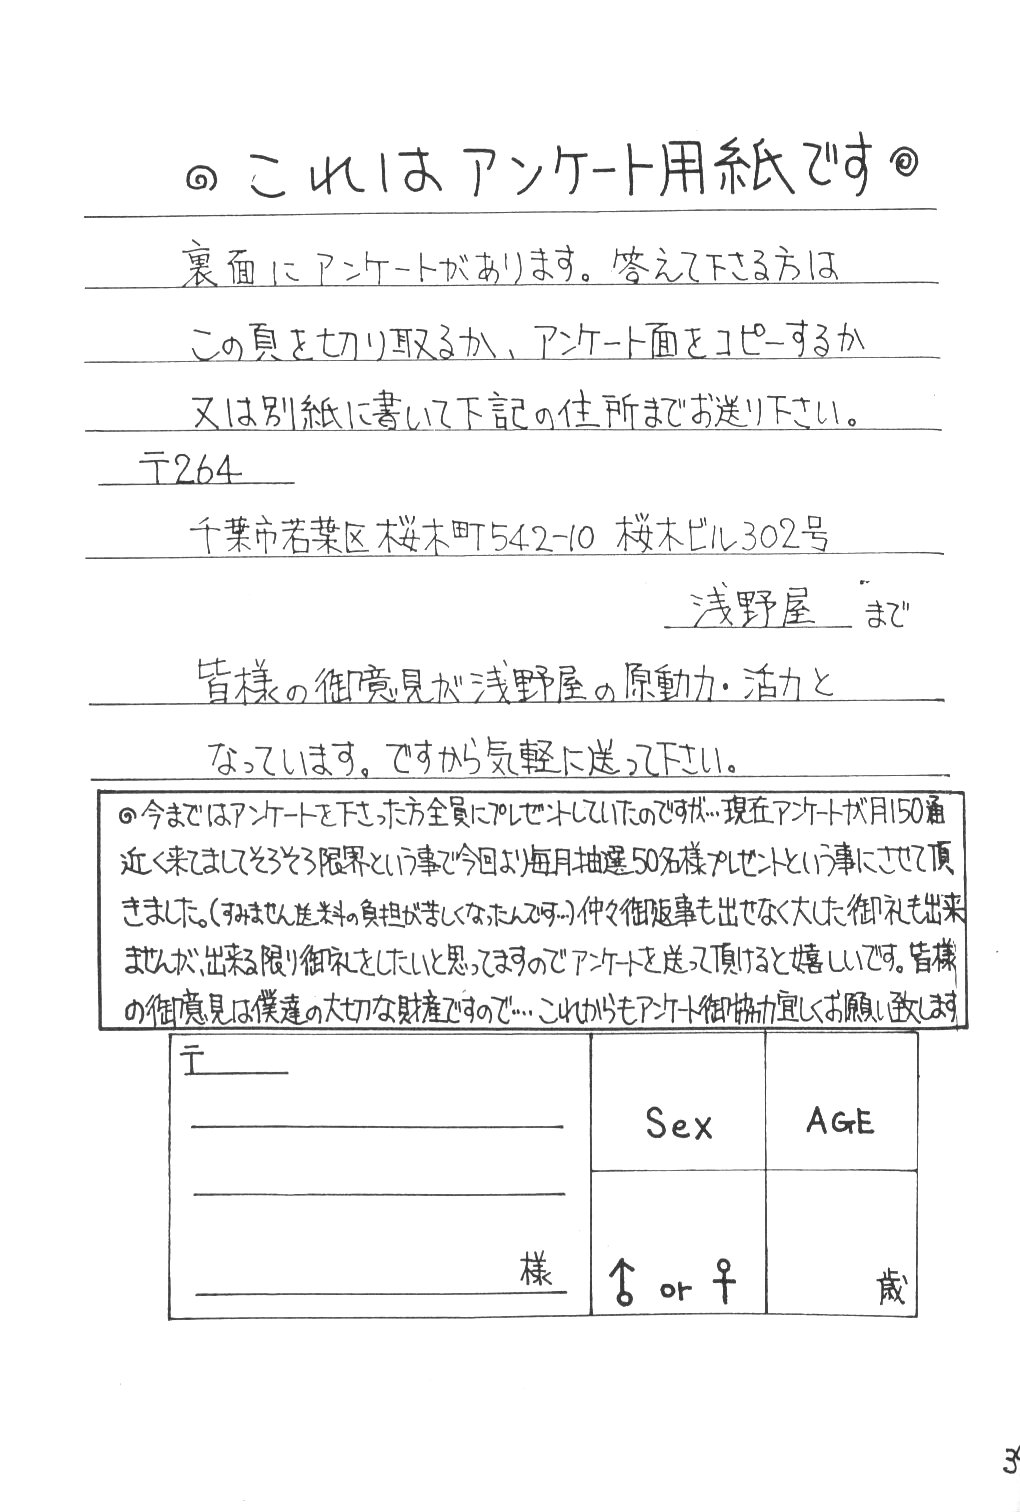 ◎これはアンケート用紙です◎
裏面にアンケートがあります。答えて下さる方は
この頁を切り取るか、アンケート面をコピーするか
又は別紙に書いて下記の住所までお送り下さい。
〒264
千葉市若葉区桜木町542-10 桜木ビル302号
浅野屋 まで
皆様の御意見が浅野屋の原動力・活力と
なっています。ですから気軽に送って下さい。
◎今まではアンケートを下さった方全員にプレゼントしていたのですが…現在アンケートが月150通
近く来てましてそろそろ限界という事で今回より毎月抽選50名様プレゼントという事にさせて頂
きました。(すみません送料の負担が苦しくなったんです…)仲々御返事も出せなく大した御礼も出来
ませんが、出来る限り御礼をしたいと思ってますのでアンケートを送って頂けると嬉しいです。皆様
の御意見は僕達の大切な財産ですので…これからもアンケート御協力宜しくお願い致します
〒
Sex
AGE
様
♂ or ♀
歳